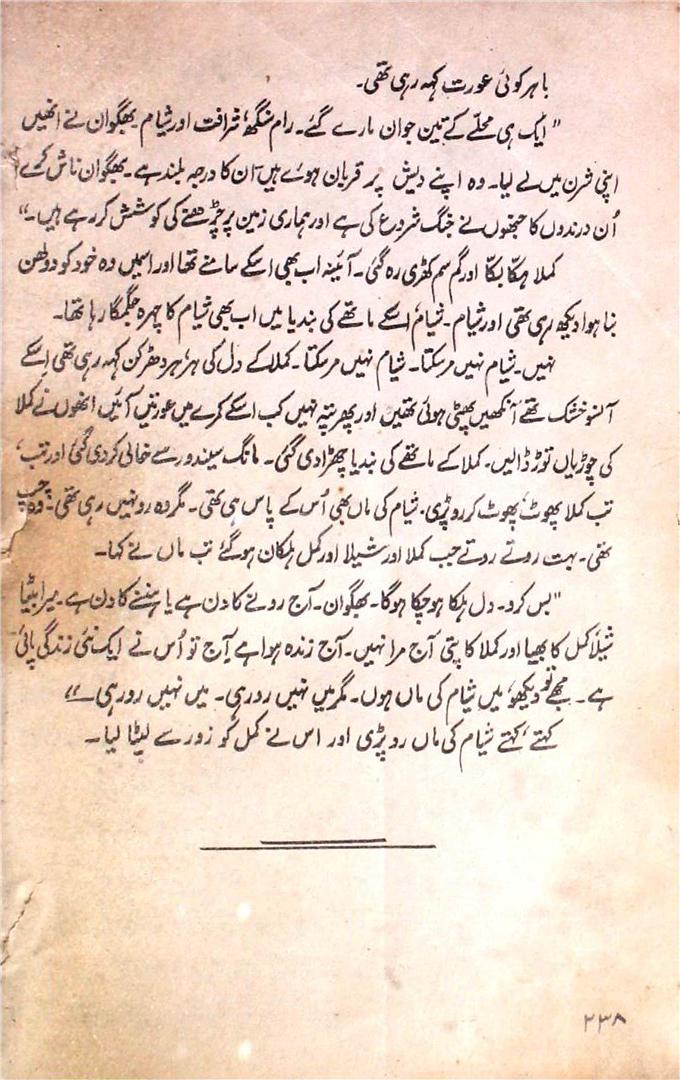 باہر کوئی عورت کہہ رہی تھی۔
"ایک ہی محلّے کے تین جوان مارے گئے۔ رام سنگھ، شرافت اور شیام۔ بھگوان نے انھیں
اپنی شرن میں لے لیا۔ وہ اپنے دیش پر قربان ہوئے ہیں ان کا درجہ بلند ہے۔ بھگوان ناش کرے
اُن درندوں کا جنھوں نے جنگ شروع کی ہے اور ہماری زمین پر چڑھنے کی کوشش کر رہے ہیں۔"
کملا ہکّا بکّا اور گم سم کھڑی رہ گئی۔ آئینہ اب بھی اسکے سامنے تھا اور اسمیں وہ خود کو دولھن
بنا ہوا دیکھ رہی تھی اور شیام۔ شیام اسکے ماتھے کی بندیا میں اب بھی شیام کا چہرہ جگمگا رہا تھا۔
نہیں۔ شیام نہیں مر سکتا۔ شیام نہیں مر سکتا۔ کملا کے دل کی ہر، ہر دھڑکن کہہ رہی تھی اسکے
آنسو خشک تھے آنکھیں پھٹی ہوئی تھیں اور پھر پتہ نہیں کب اسکے کمرے میں عورتیں آئیں انھوں نے کملا
کی چوڑیاں توڑ ڈالیں۔ کملا کے ماتھے کی بندیا چھڑا دی گئی۔ مانگ سیندور سے خالی کر دی گئی اور تب،
تب کملا پھوٹ، پھوٹ کر رو پڑی۔ شیام کی ماں بھی اُس کے پاس ہی تھی۔ مگر وہ رو نہیں رہی تھی۔ وہ چپ
تھی۔ بہت روتے روتے جب کملا اور شیلا اور کمل ہلکان ہو گئے تب ماں نے کہا۔
"بس کرو۔ دل ہلکا ہو چکا ہوگا۔ بھگوان۔ آج رونے کا دن ہے یا ہنسنے کا دن ہے۔ میرا بیٹا
شیلا، کمل کا بھیا اور کملا کا پتی آج مرا نہیں۔ آج زندہ ہوا ہے آج تو اُس نے ایک نئی زندگی پائی
ہے۔ مجھے تو دیکھو، میں شیام کی ماں ہوں۔ مگر میں نہیں رو رہی۔ میں نہیں رو رہی۔"
کہتے، کہتے شیام کی ماں رو پڑی اور اس نے کمل کو زور سے لپٹا لیا۔
۲۳۸